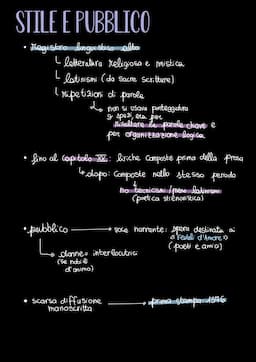 STILE E PUBBLICO
• Registro linguistico alto
letteratura religiosa e mistica
latinismi (da sacre scritture)
ripetizioni di parole
non si usava punteggiatura
risaltare le parole chiave e
per organizzazione logica
• fino al capitolo XX: liriche composte prima della prosa
dopo: composte nello stesso periodo
no tecnicismi / meno latinismi
(poetica stilnovistica)
• pubblico voce narrante: opera destinata ai
"Fedeli d'Amore"
(poeti e amici)
donne: interlocutrici
(se nobili
d'animo)
• scarsa diffusione prima stampa 1576
manoscritta